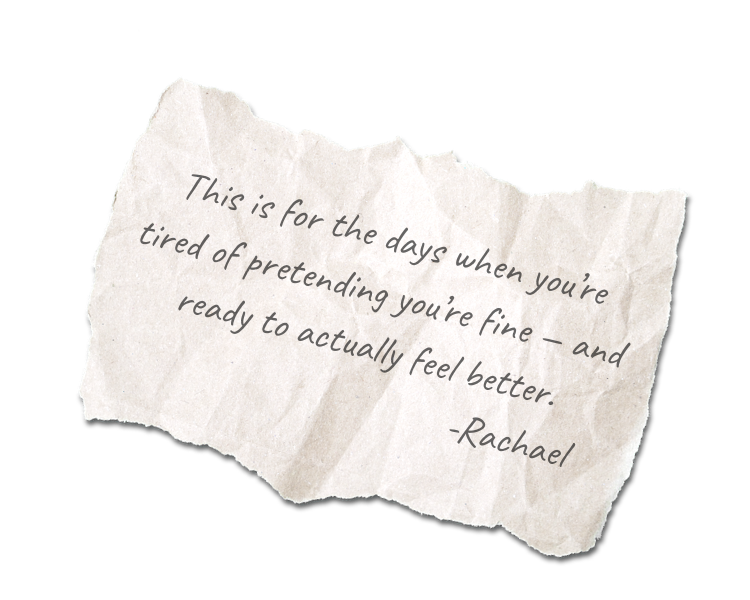 This is for the days when you're
tired of pretending you're fine – and
ready to actually feel better.
-Rachael